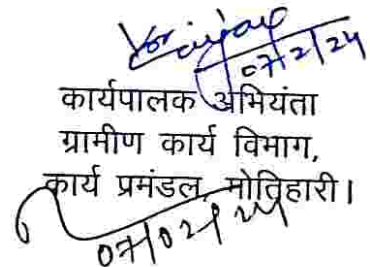 07/2/24
कार्यपालक अभियंता
ग्रामीण कार्य विभाग,
कार्य प्रमंडल, मोतिहारी।
07/02/24